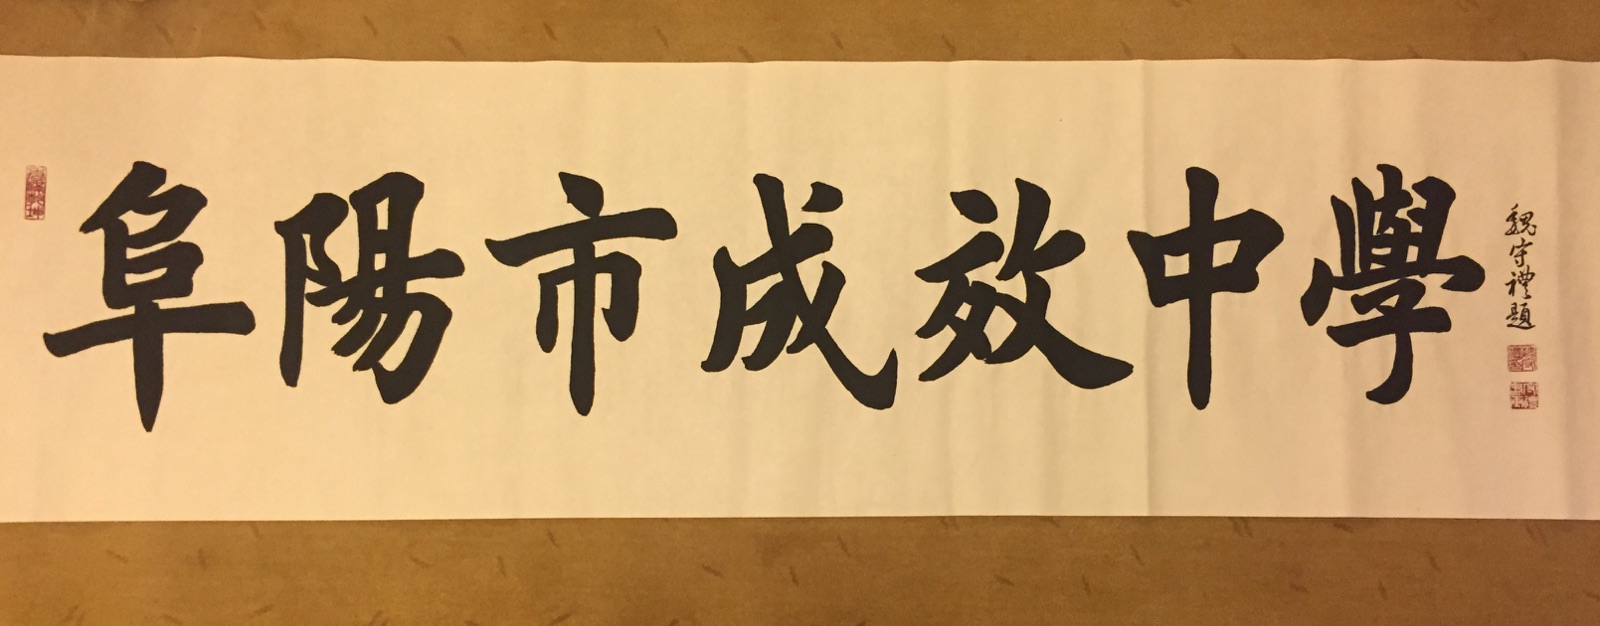 阜陽市成效中學
魏守禮題